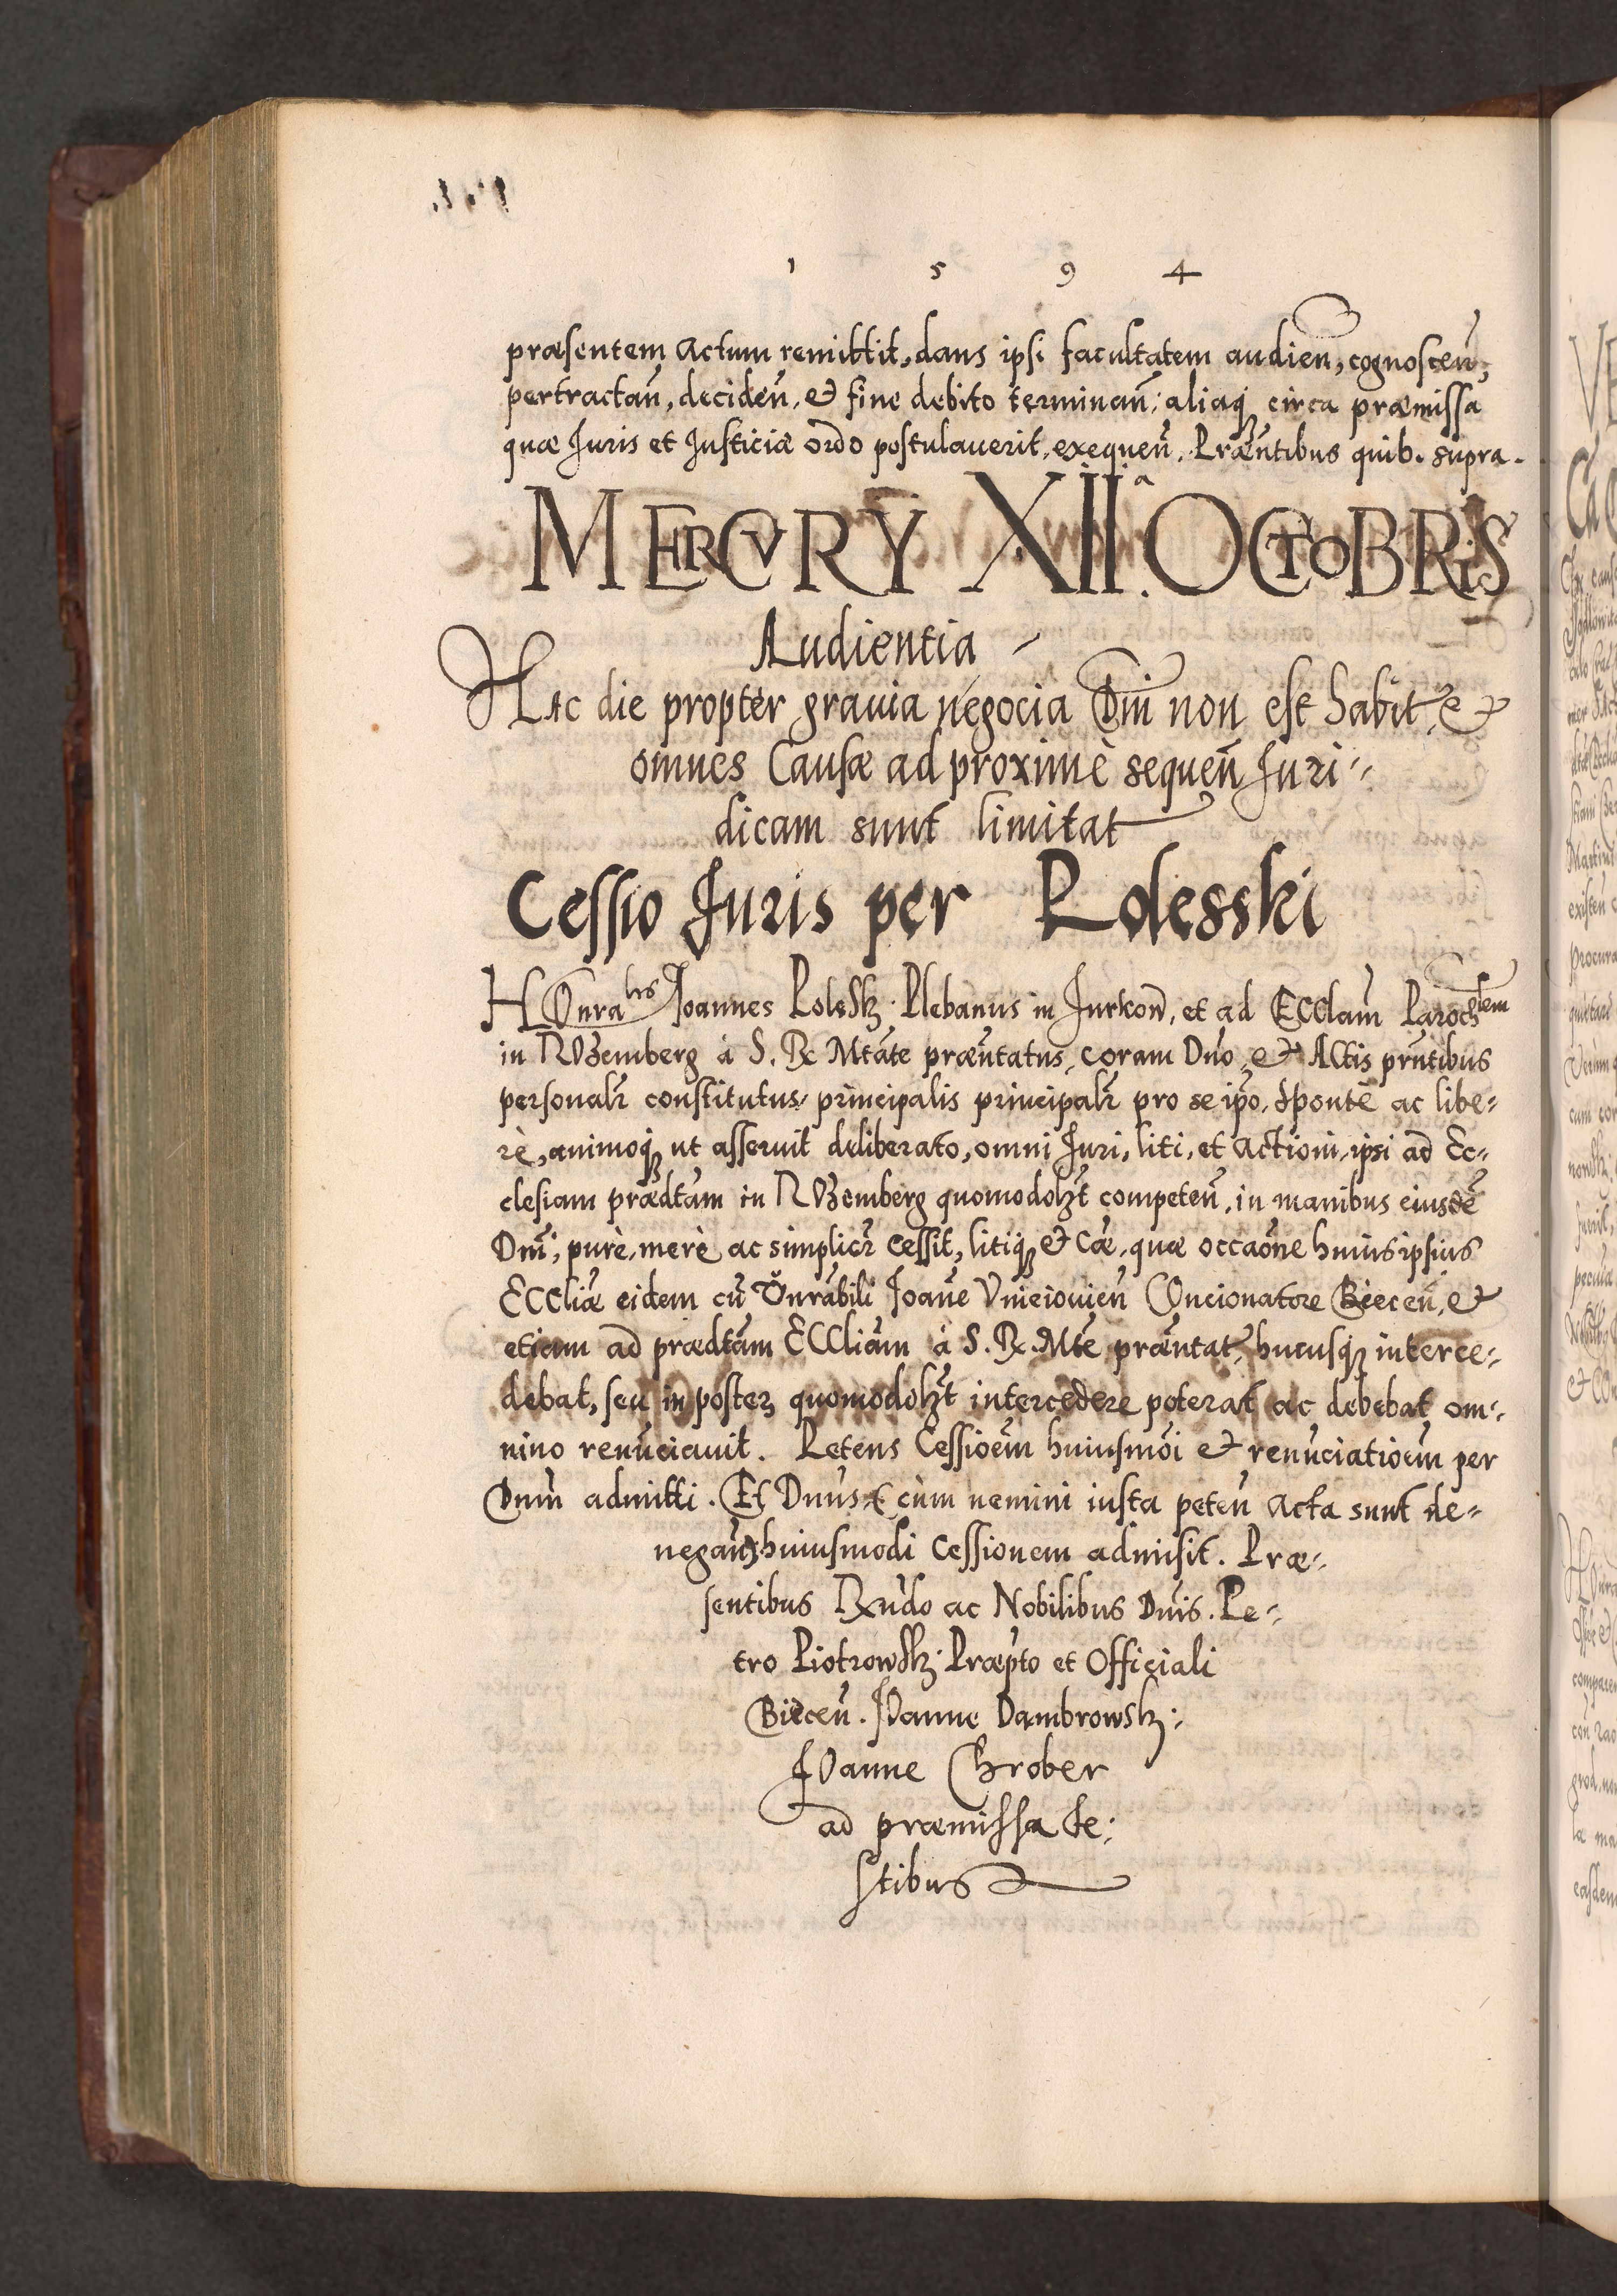 1 5 9 4
præsentem Actum remittit, dans ipsi facultatem audien̄, cognoscen̄,
pertractan̄, deciden̄, et fine debito terminan̄; aliaqꝫ circa præmissa
quæ Juris et Justiciæ ordo postulaverit, exequen̄. Præn̄tibus quib. supra.
MERCVRY XIIª. OCTOBRIS
Audientia
HAc die propter gravia negocia Dni non est habit, et
omnes Causæ ad proximè sequen̄ Juri=
dicam sunt limitat
Cessio Juris per Rolesski
HOnra^lis Joannes Rolesskj Plebanus in Jurkow̄, et ad Ecclam Paroch^lem
in Rozemberg à S. R. Mtāte præn̄tatus, coram Dn̄o et Actis pn̄tibus
personalr̄ constitutus, principalis principalr̄ pro se ip̄o, sponte ac libe=
rè, animoqꝫ ut asseruit deliberato, omni Juri, liti, et Actioni, ipsi ad Ec=
clesiam prædtam in Rozemberg quomodolꝫt competen̄, in manibus eiusdē
Dnī, purè, merè ac simplicr̄ cessit, litiqꝫ et cāe, quæ occāone huius ipsius
Ecclīæ eidem cū Honrābili Joan̄e Unieiovien̄ Concionatore Biecen̄, et
etiam ad prædtam Ecclīam à S. R. Mte præn̄tat, hucusqꝫ interce=
debat, seu in posterꝫ quomodolꝫt intercedere poterat ac debebat om=
nino renūciavit. Petens Cessioēm huiusmōi et renūciatioēm per
Dnm̄ admitti. Et Dn̄us cùm nemini iusta peten̄ Acta sunt de=
negandꝫ huiusmodi Cessionem admisit. Præ=
sentibus Rn̄do ac Nobilibus Dn̄is. Pe=
tro Piotrowskj Præp̄to et Officiali
Biecen̄. Joanne Dambrowskj
Joanne Chrober
ad præmissa te=
stibus